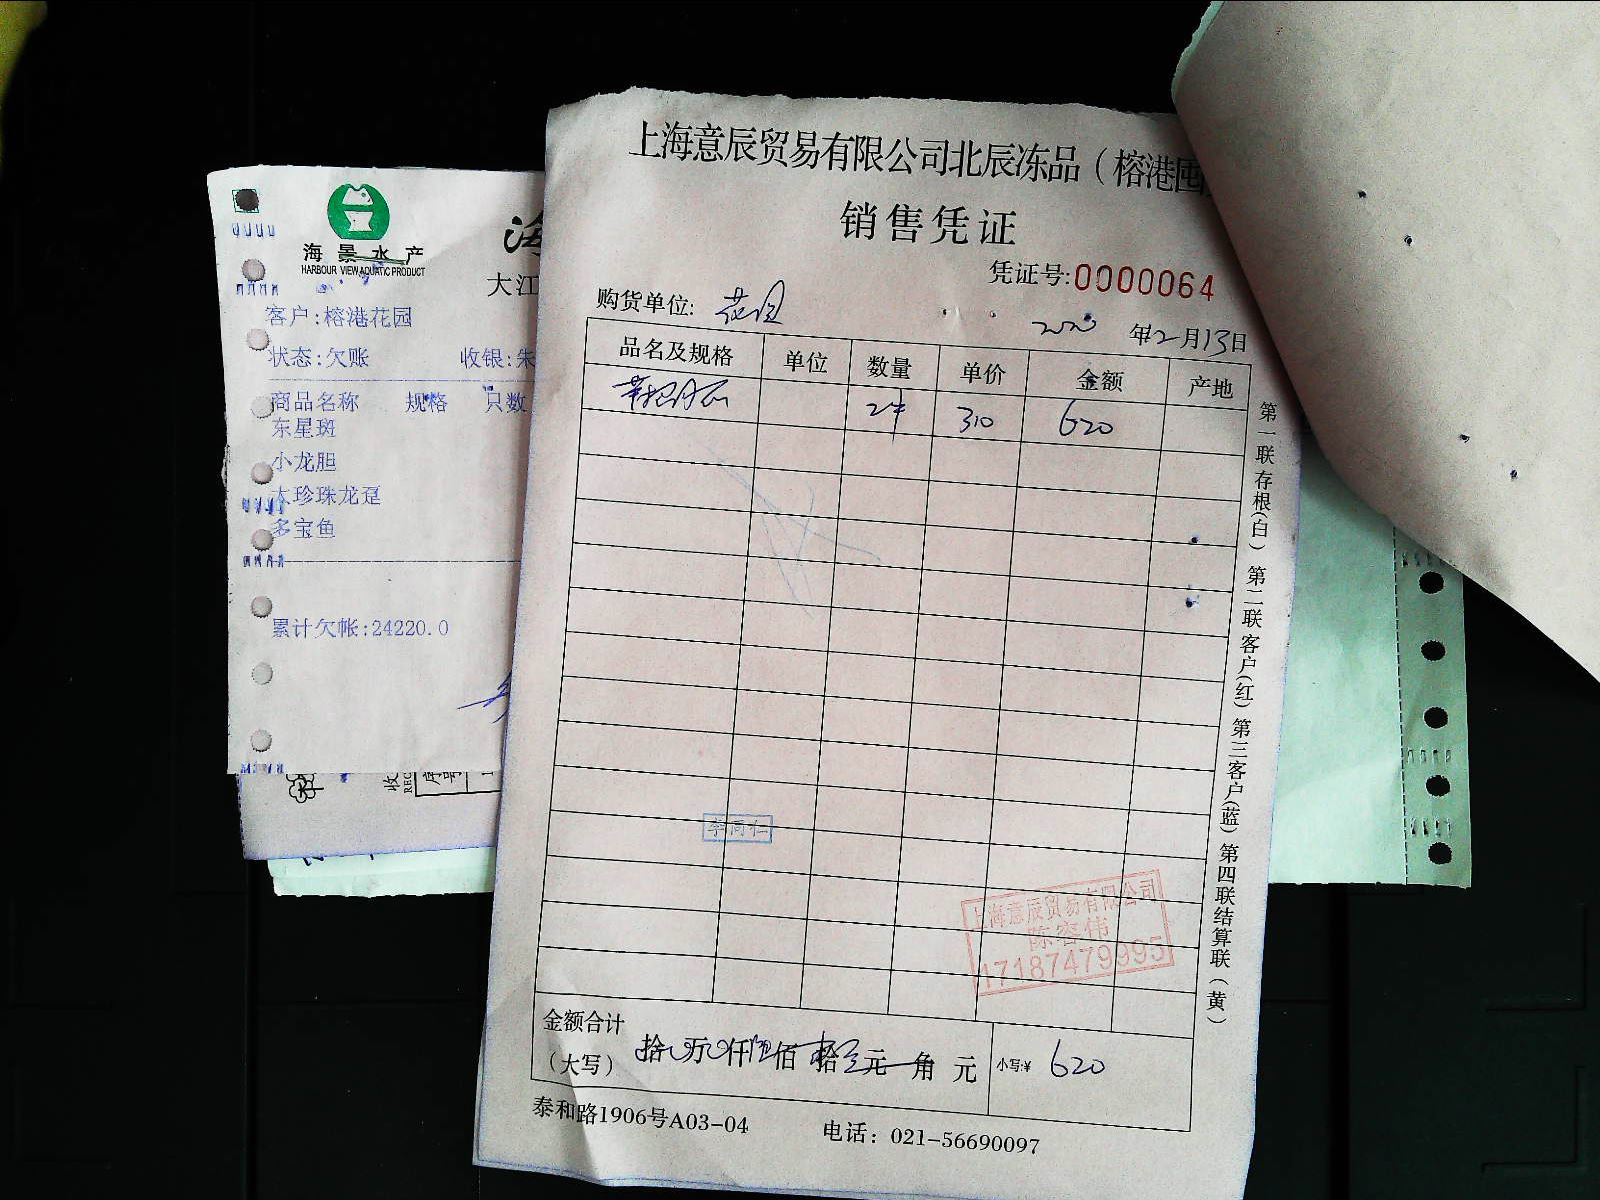 上海意辰贸易有限公司北辰冻品（榕港囤
销售凭证
凭证号:0000064
购货单位: 花园
2020 年2月13日
品名及规格 单位 数量 单价 金额 产地
2件 310 620
李同仁
上海意辰贸易有限公司
陈容伟
17187479995
金额合计
（大写） 拾 万 仟 佰 拾 元 角 元 小写:¥ 620
泰和路1906号A03-04 电话：021-56690097
第一联存根(白) 第二联客户(红) 第三客户(蓝) 第四联结算联(黄)
海景水产
HARBOUR VIEW AQUATIC PRODUCT
大江
客户:榕港花园
状态:欠账 收银:朱
商品名称 规格 只数
东星斑
小龙胆
大珍珠龙趸
多宝鱼
累计欠帐:24220.0